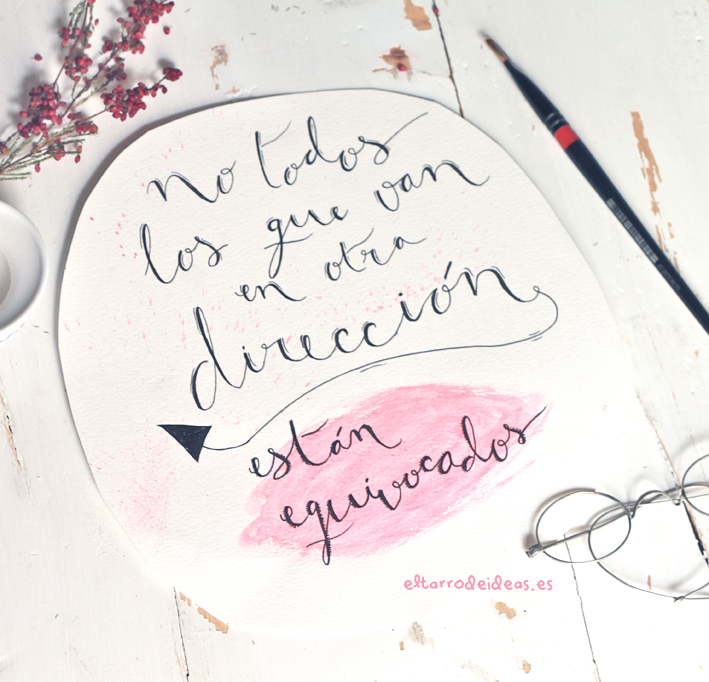 no todos
los que van
en otra
dirección
están
equivocados
eltarrodeideas.es